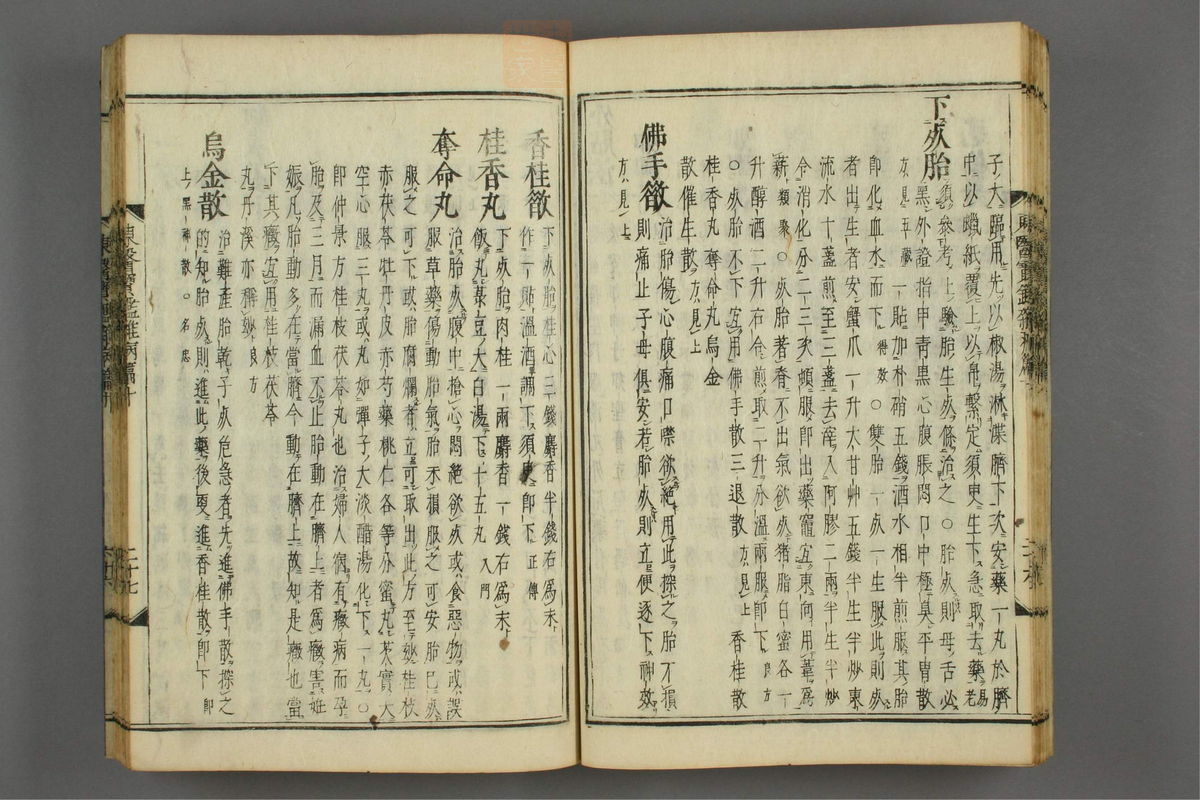 子大腸用先以椒湯淋溁臍下次安藥一丸於臍
中以蠟紙覆上以帛繫定須臾生下急取去藥
下死胎
須參考上驗胎生死條治之○胎死則母舌必
黑外證指甲青黑心腹脹悶口中極臭平胃散
方見五臟一貼加朴硝五錢酒水相半煎服其胎
即化血水而下得效○雙胎一死一生服此則死
者出生者安蟹爪一升大甘艸五錢半生半炒東
流水十盞煎至三盞去滓入阿膠二兩半生半炒
令消化分二三次頓服即出藥竈宜東向用葦爲
薪類聚○死胎若不出氣欲死猪脂白蜜各一
升醇酒二升右合煎取二升分溫兩服即下良方
○死胎不下宜用佛手散三退散方見上香桂散
桂香丸奪命丸烏金
散催生散方見上
佛手散
治胎傷心腹痛口噤欲絶用此探之胎不損
則痛止子母俱安若胎死則立便逐下神效
方見上
香桂散
下死胎桂心三錢麝香半錢右爲末
作一貼溫酒調下須臾即下正傳
桂香丸
下死胎肉桂一兩麝香一錢右爲末
飯丸菉豆大白湯下十五丸入門
奪命丸
治胎死腹中搶心悶絶欲死或食惡物或誤
服草藥傷動胎氣胎未損服之可安胎已死
服之可下或胎腐爛者立可取出此方至玅桂枝
赤茯苓牡丹皮赤芍藥桃仁各等分蜜丸芡實大
空心服三丸或丸如彈子大淡醋湯化下一丸○
即仲景方桂枝茯苓丸也治婦人宿有癥病而孕
胎及三月而漏血不止胎動在臍上者爲癥害妊
娠凡胎動多在當臍今動在臍上故知是癥也當
下其癥宜用桂枝茯苓
丸丹溪亦稱玅良方
烏金散
治難產胎乾子死危急者先進佛手散探之
的知胎死則進此藥後更進香桂散即下即
上黑神散○名
東醫寶鑑雜病篇十
二十九